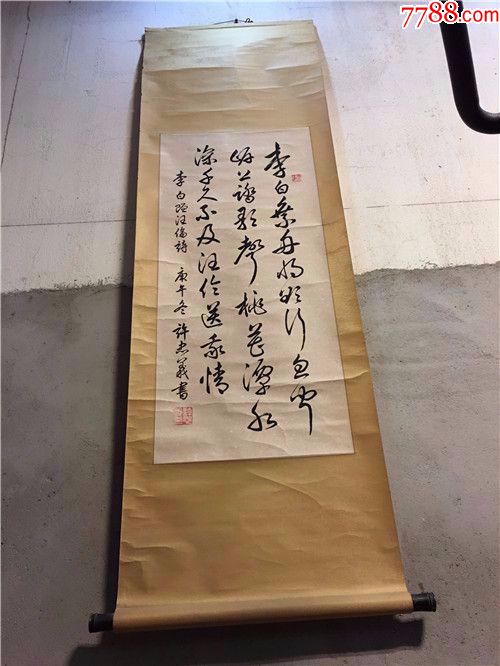 7788.com
李白乘舟将欲行忽闻
岸上踏歌聲桃花潭水
深千尺不及汪倫送我情
李白贈汪倫詩 庚午冬 許忠義書